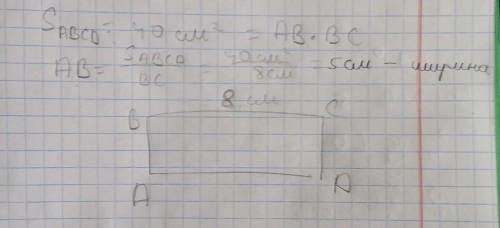 S_ABCD = 40 см² = AB · BC
AB = S_ABCD / BC = 40 см² / 8 см = 5 см - ширина
8 см
B C
A D